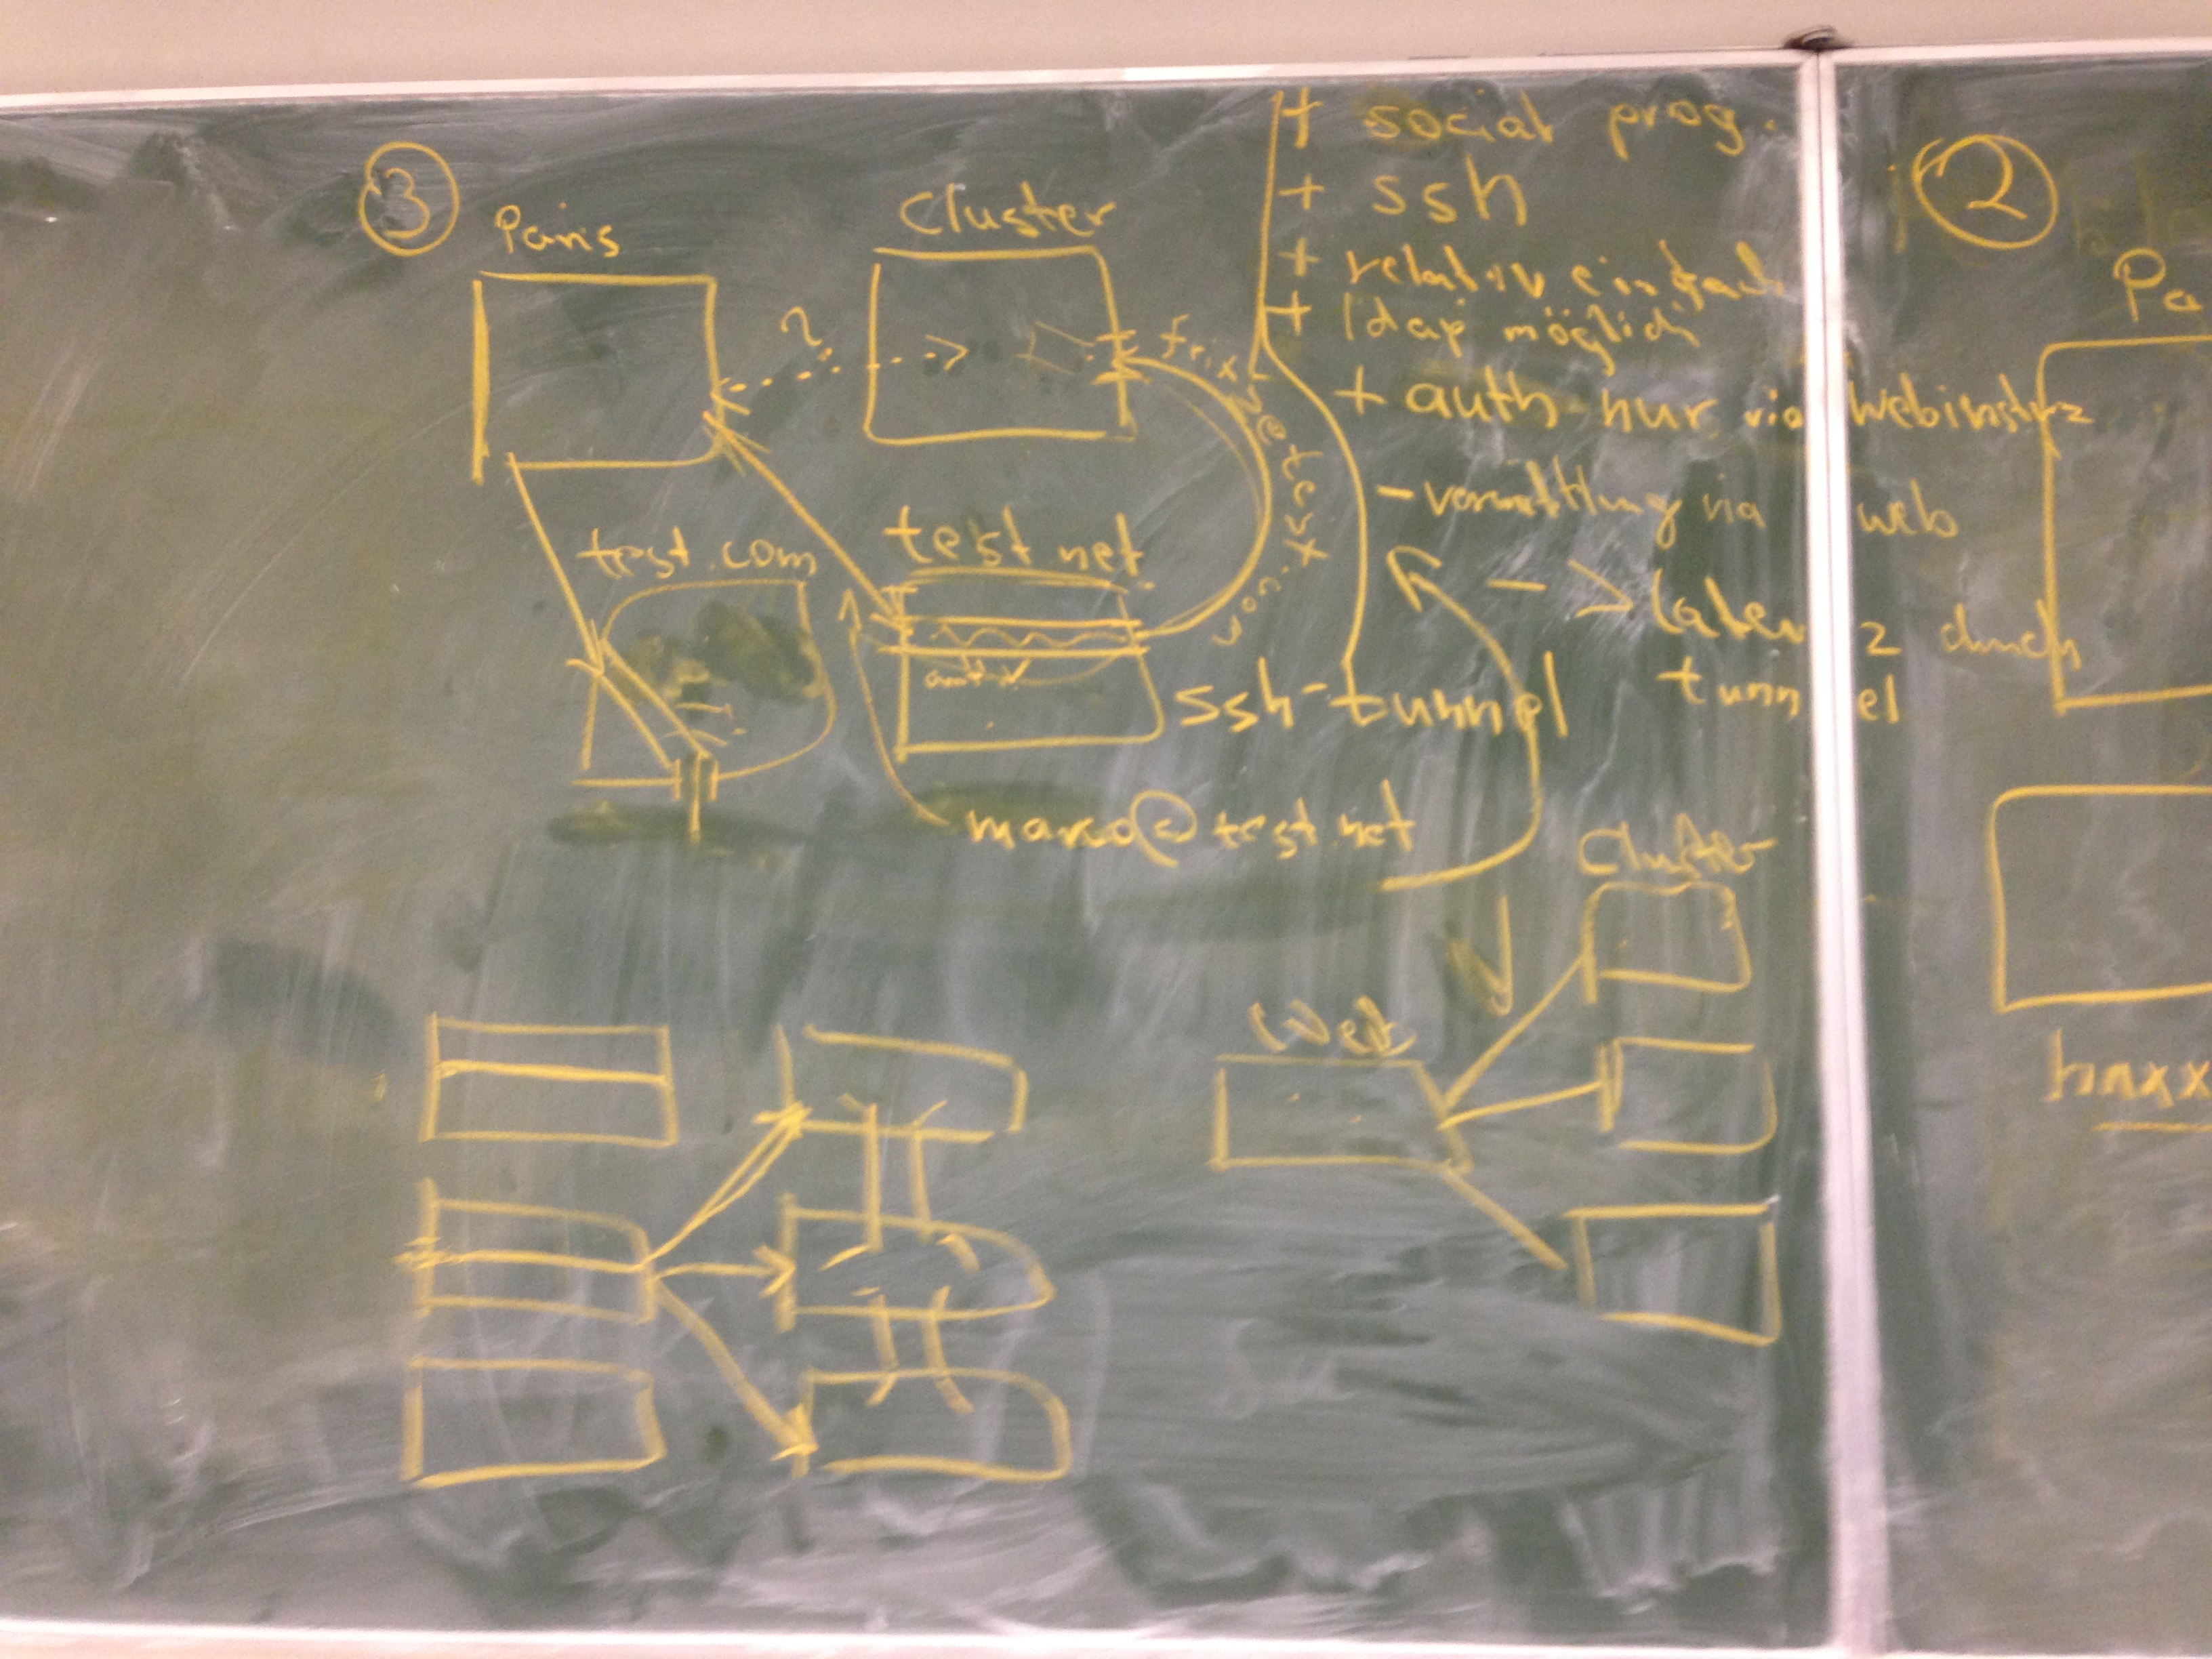 ③
Paris
Cluster
?
test.com
test.net
auth ✓
von
ssh-tunnel
marco@test.net
+ social prog.
+ ssh
+ relativ einfach
+ ldap möglich
+ auth nur via Webinstanz
- vermittlung via web
-> latenz durch
tunnel
Cluster
Web
②
Pa
hnxx